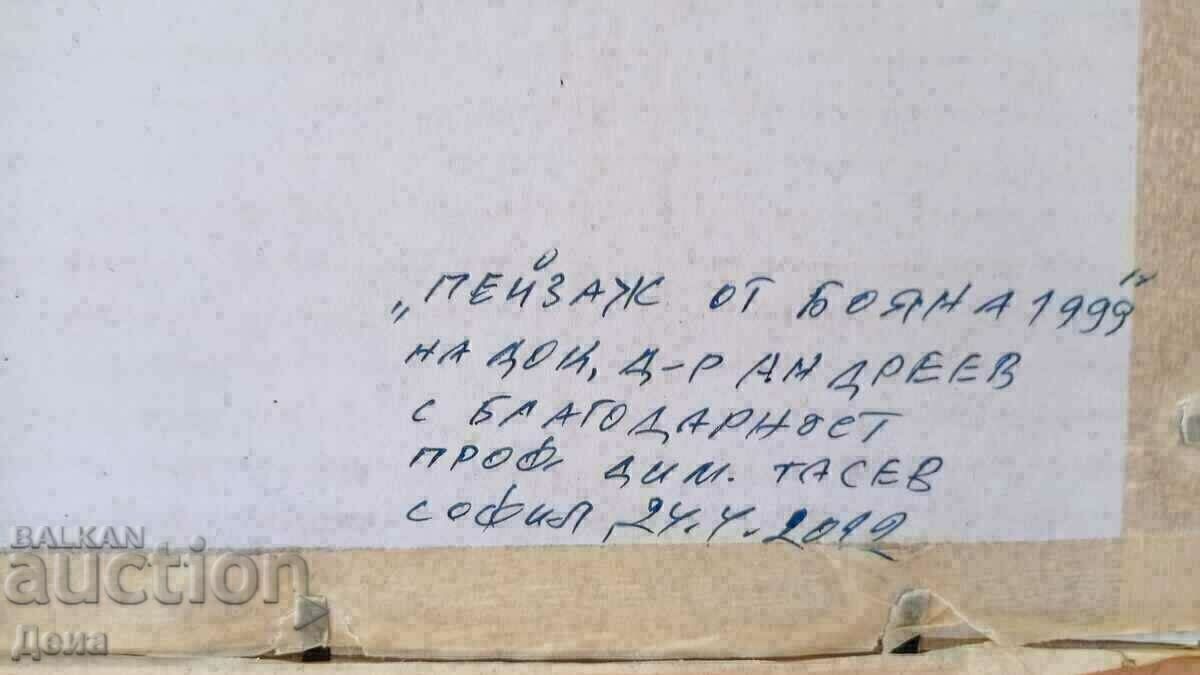 „ПЕЙЗАЖ ОТ БОЯНА 1999"
НА ДОЦ. Д-Р АНДРЕЕВ
С БЛАГОДАРНОСТ
ПРОФ. ДИМ. ТАСЕВ
СОФИЯ, 24.4.2012
BALKAN
auction
Деиа